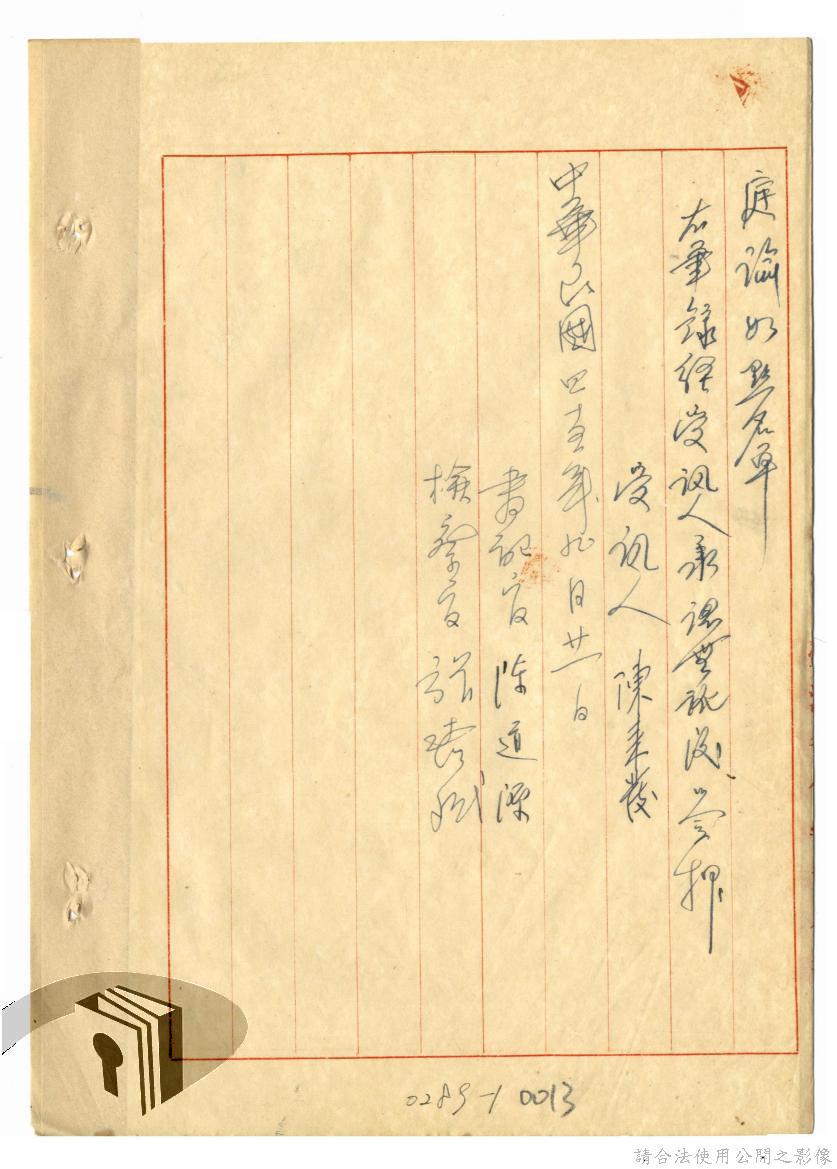 庭諭如點名單
右筆錄經受訊人承認無訛後簽押
受訊人 陳來發
中華民國四五年九月廿一日
書記官 陳道深
檢察官
0289-1 0013
請合法使用公開之影像